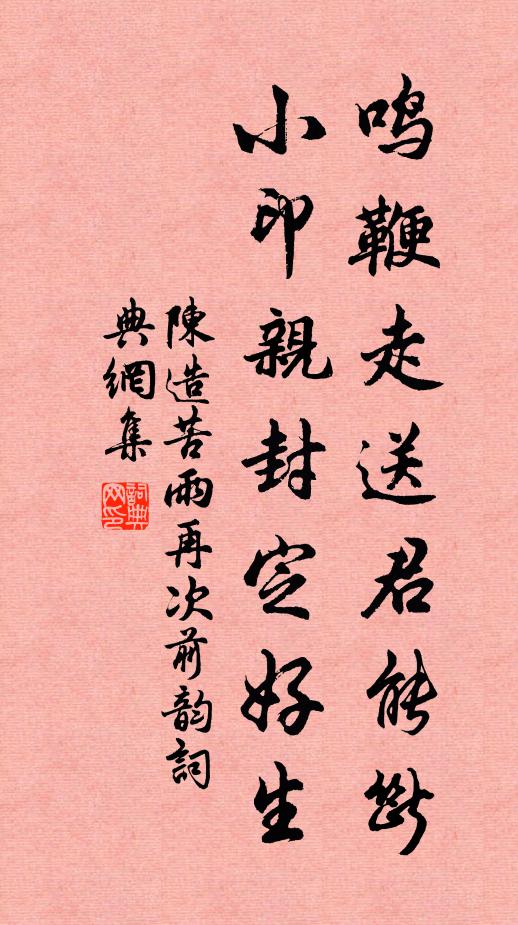 鸣鞭走送君能断
小印親封定好生
陳造苦雨再次前韵詞
典網集
詞典网印